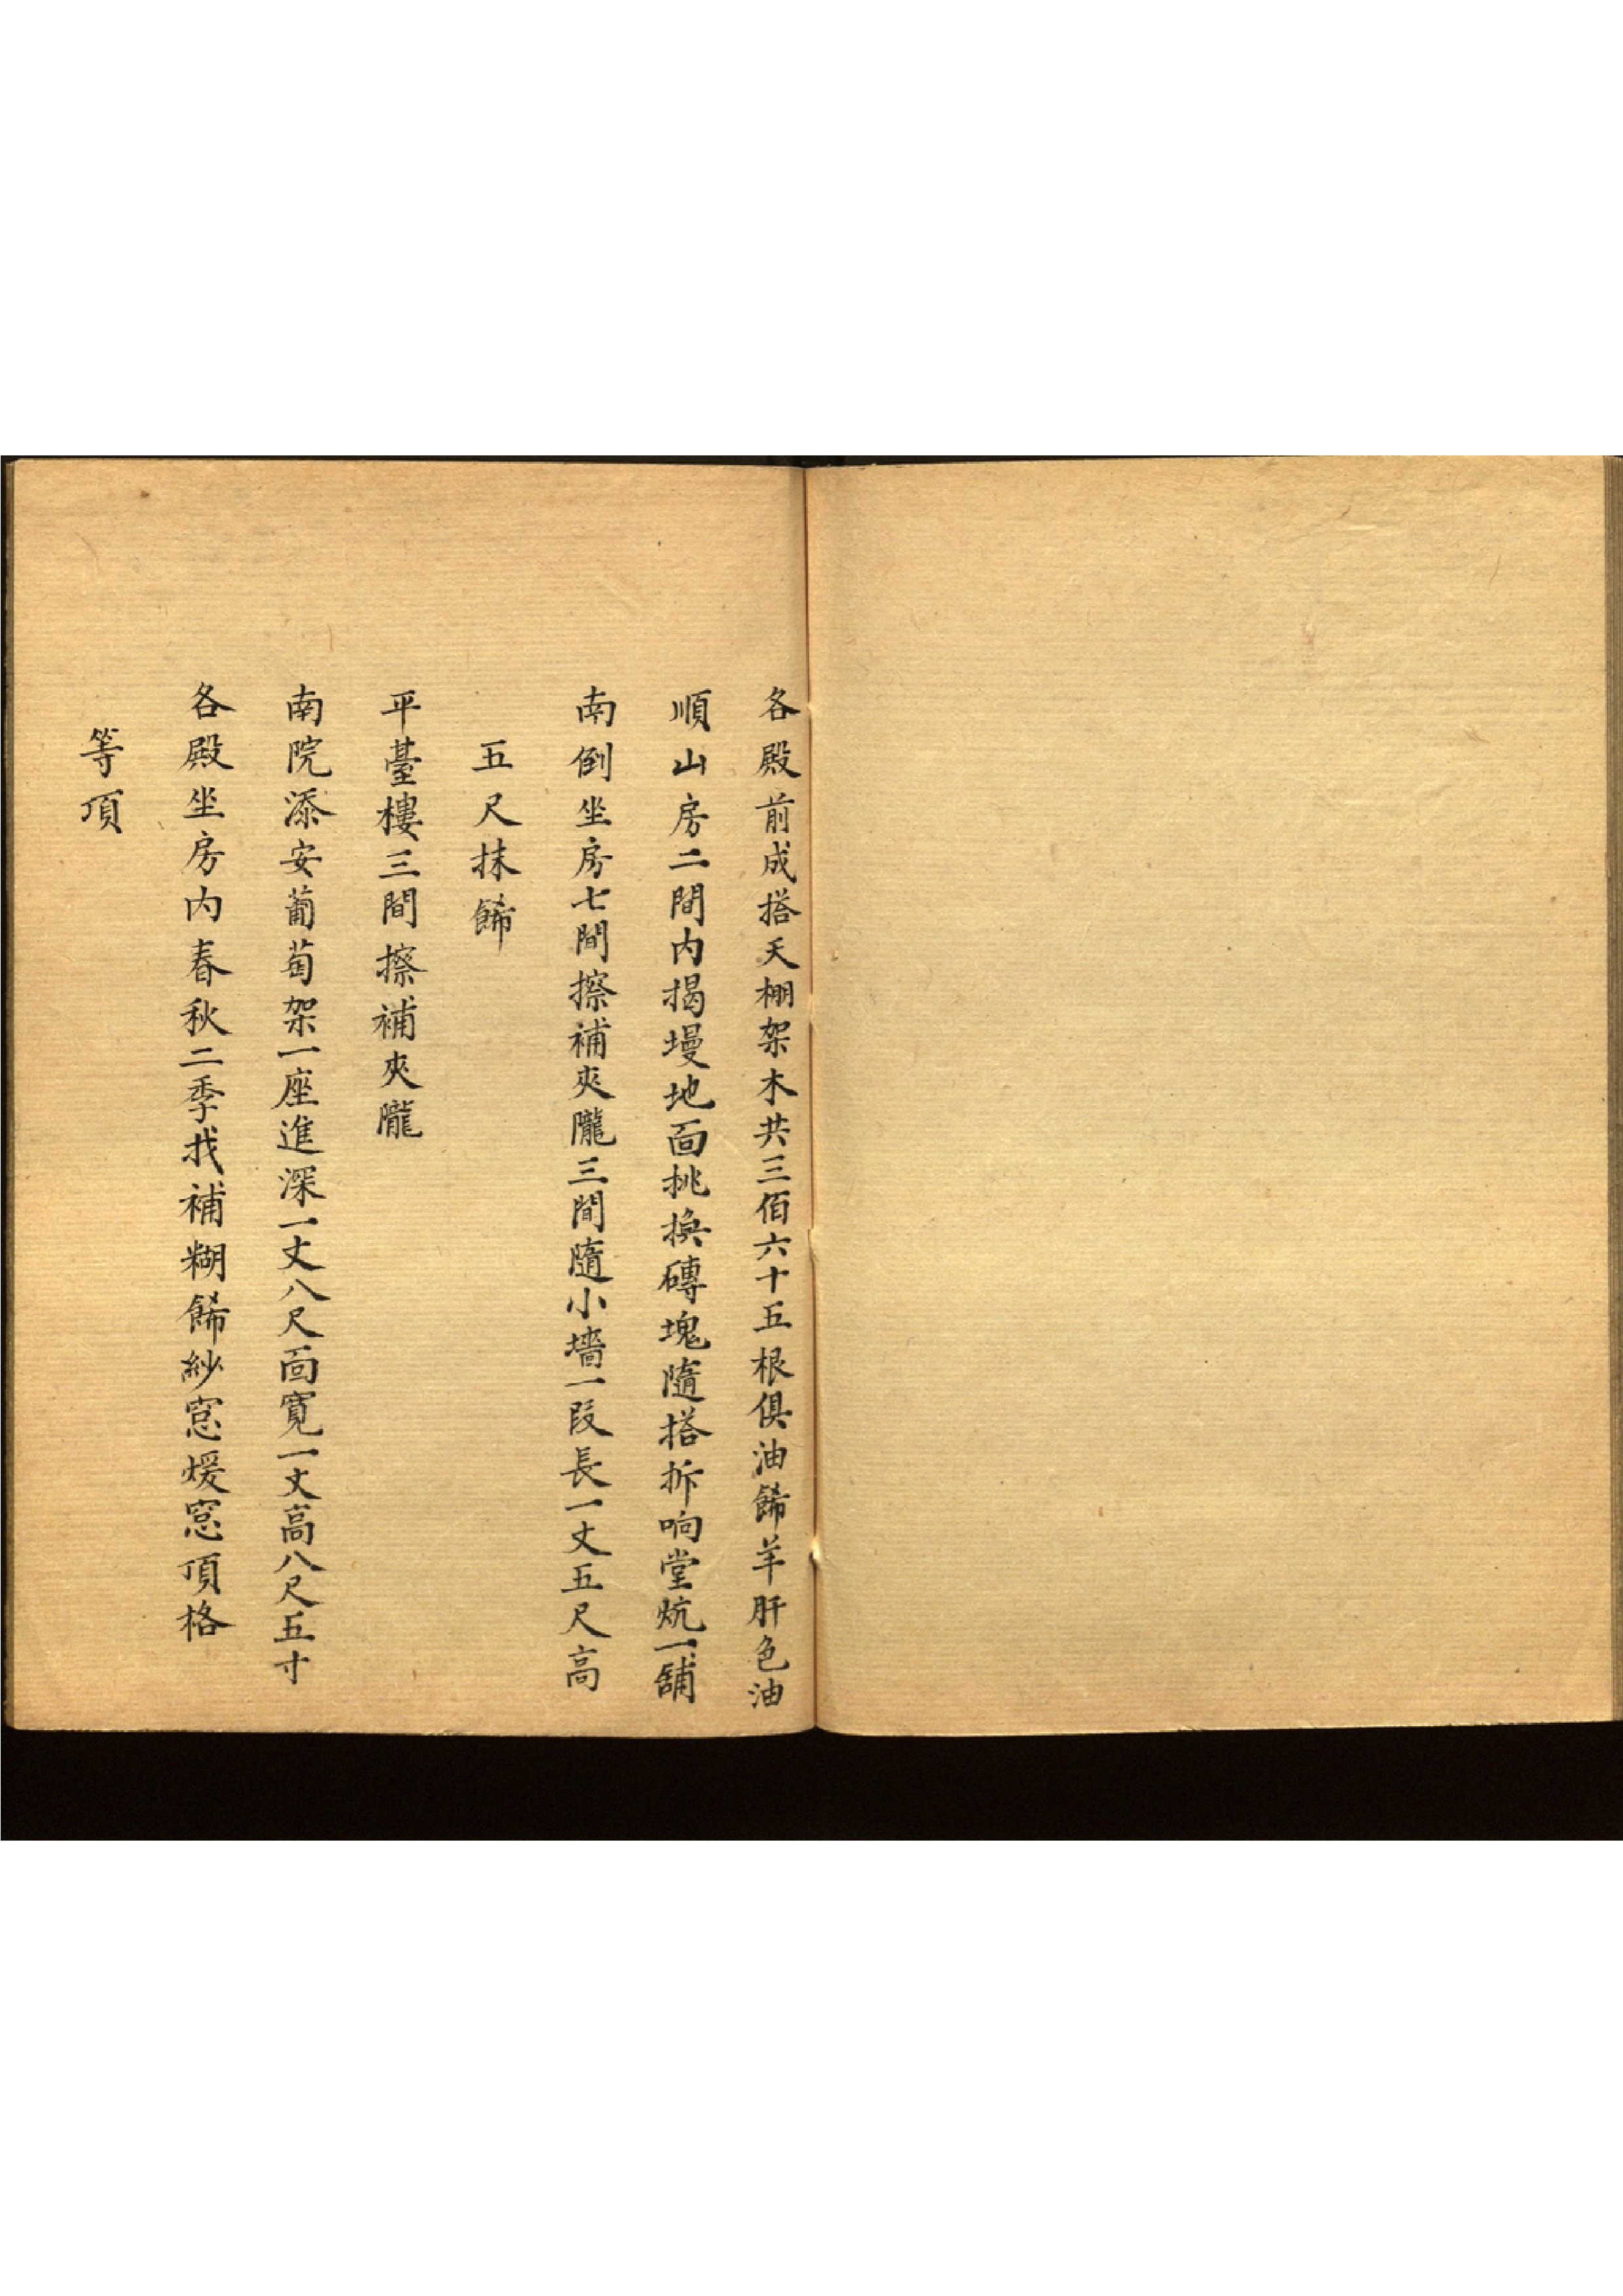 各殿前成搭天棚架木共三佰六十五根俱油餙羊肝色油
順山房二間内揭墁地面挑換磚塊隨搭拆响堂炕一舖
南倒坐房七間擦補夾隴三間隨小墻一段長一丈五尺高
五尺抹餙
平臺樓三間擦補夾隴
南院添安葡萄架一座進深一丈八尺面寬一丈高八尺五寸
各殿坐房内春秋二季找補糊餙紗窓煖窓頂格
等項